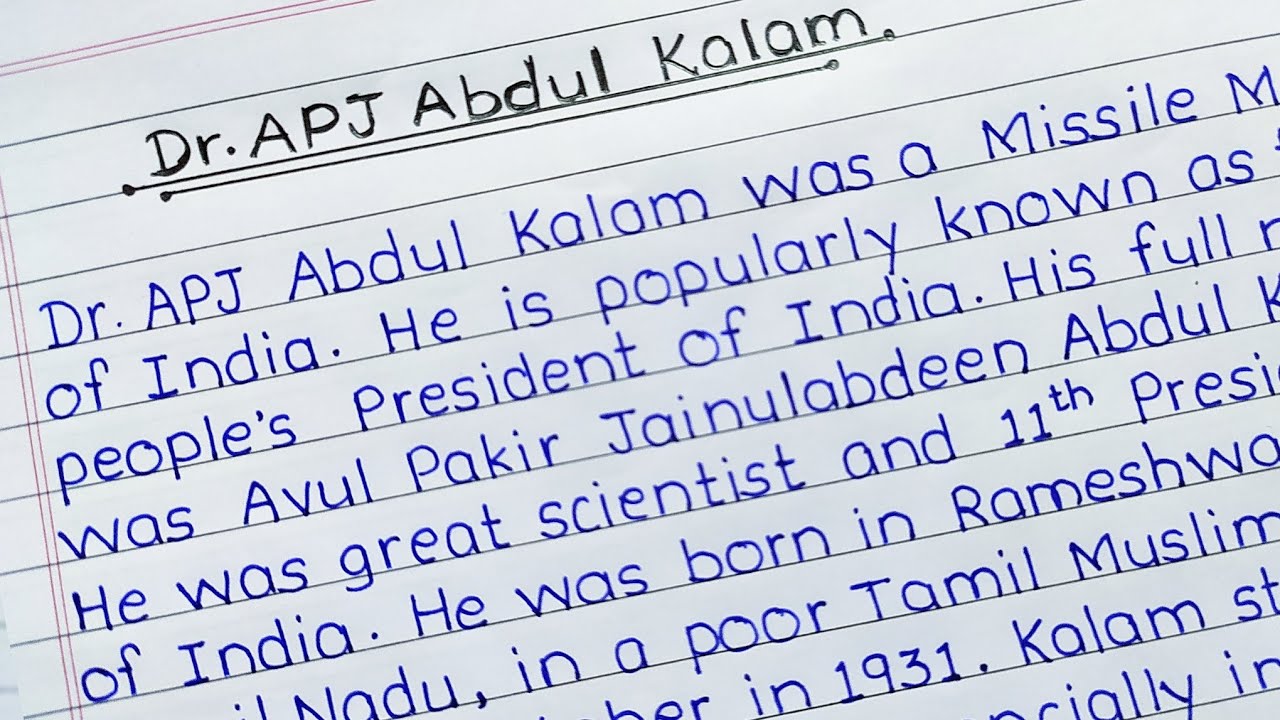 Dr. APJ Abdul Kalam.
Dr. APJ Abdul Kalam was a Missile
of India. He is popularly known as
people's President of India. His full
was Avul Pakir Jainulabdeen Abdul
He was great scientist and 11th
of India. He was born in
Nadu, in a poor Tamil Muslim
in 1931. Kalam
in